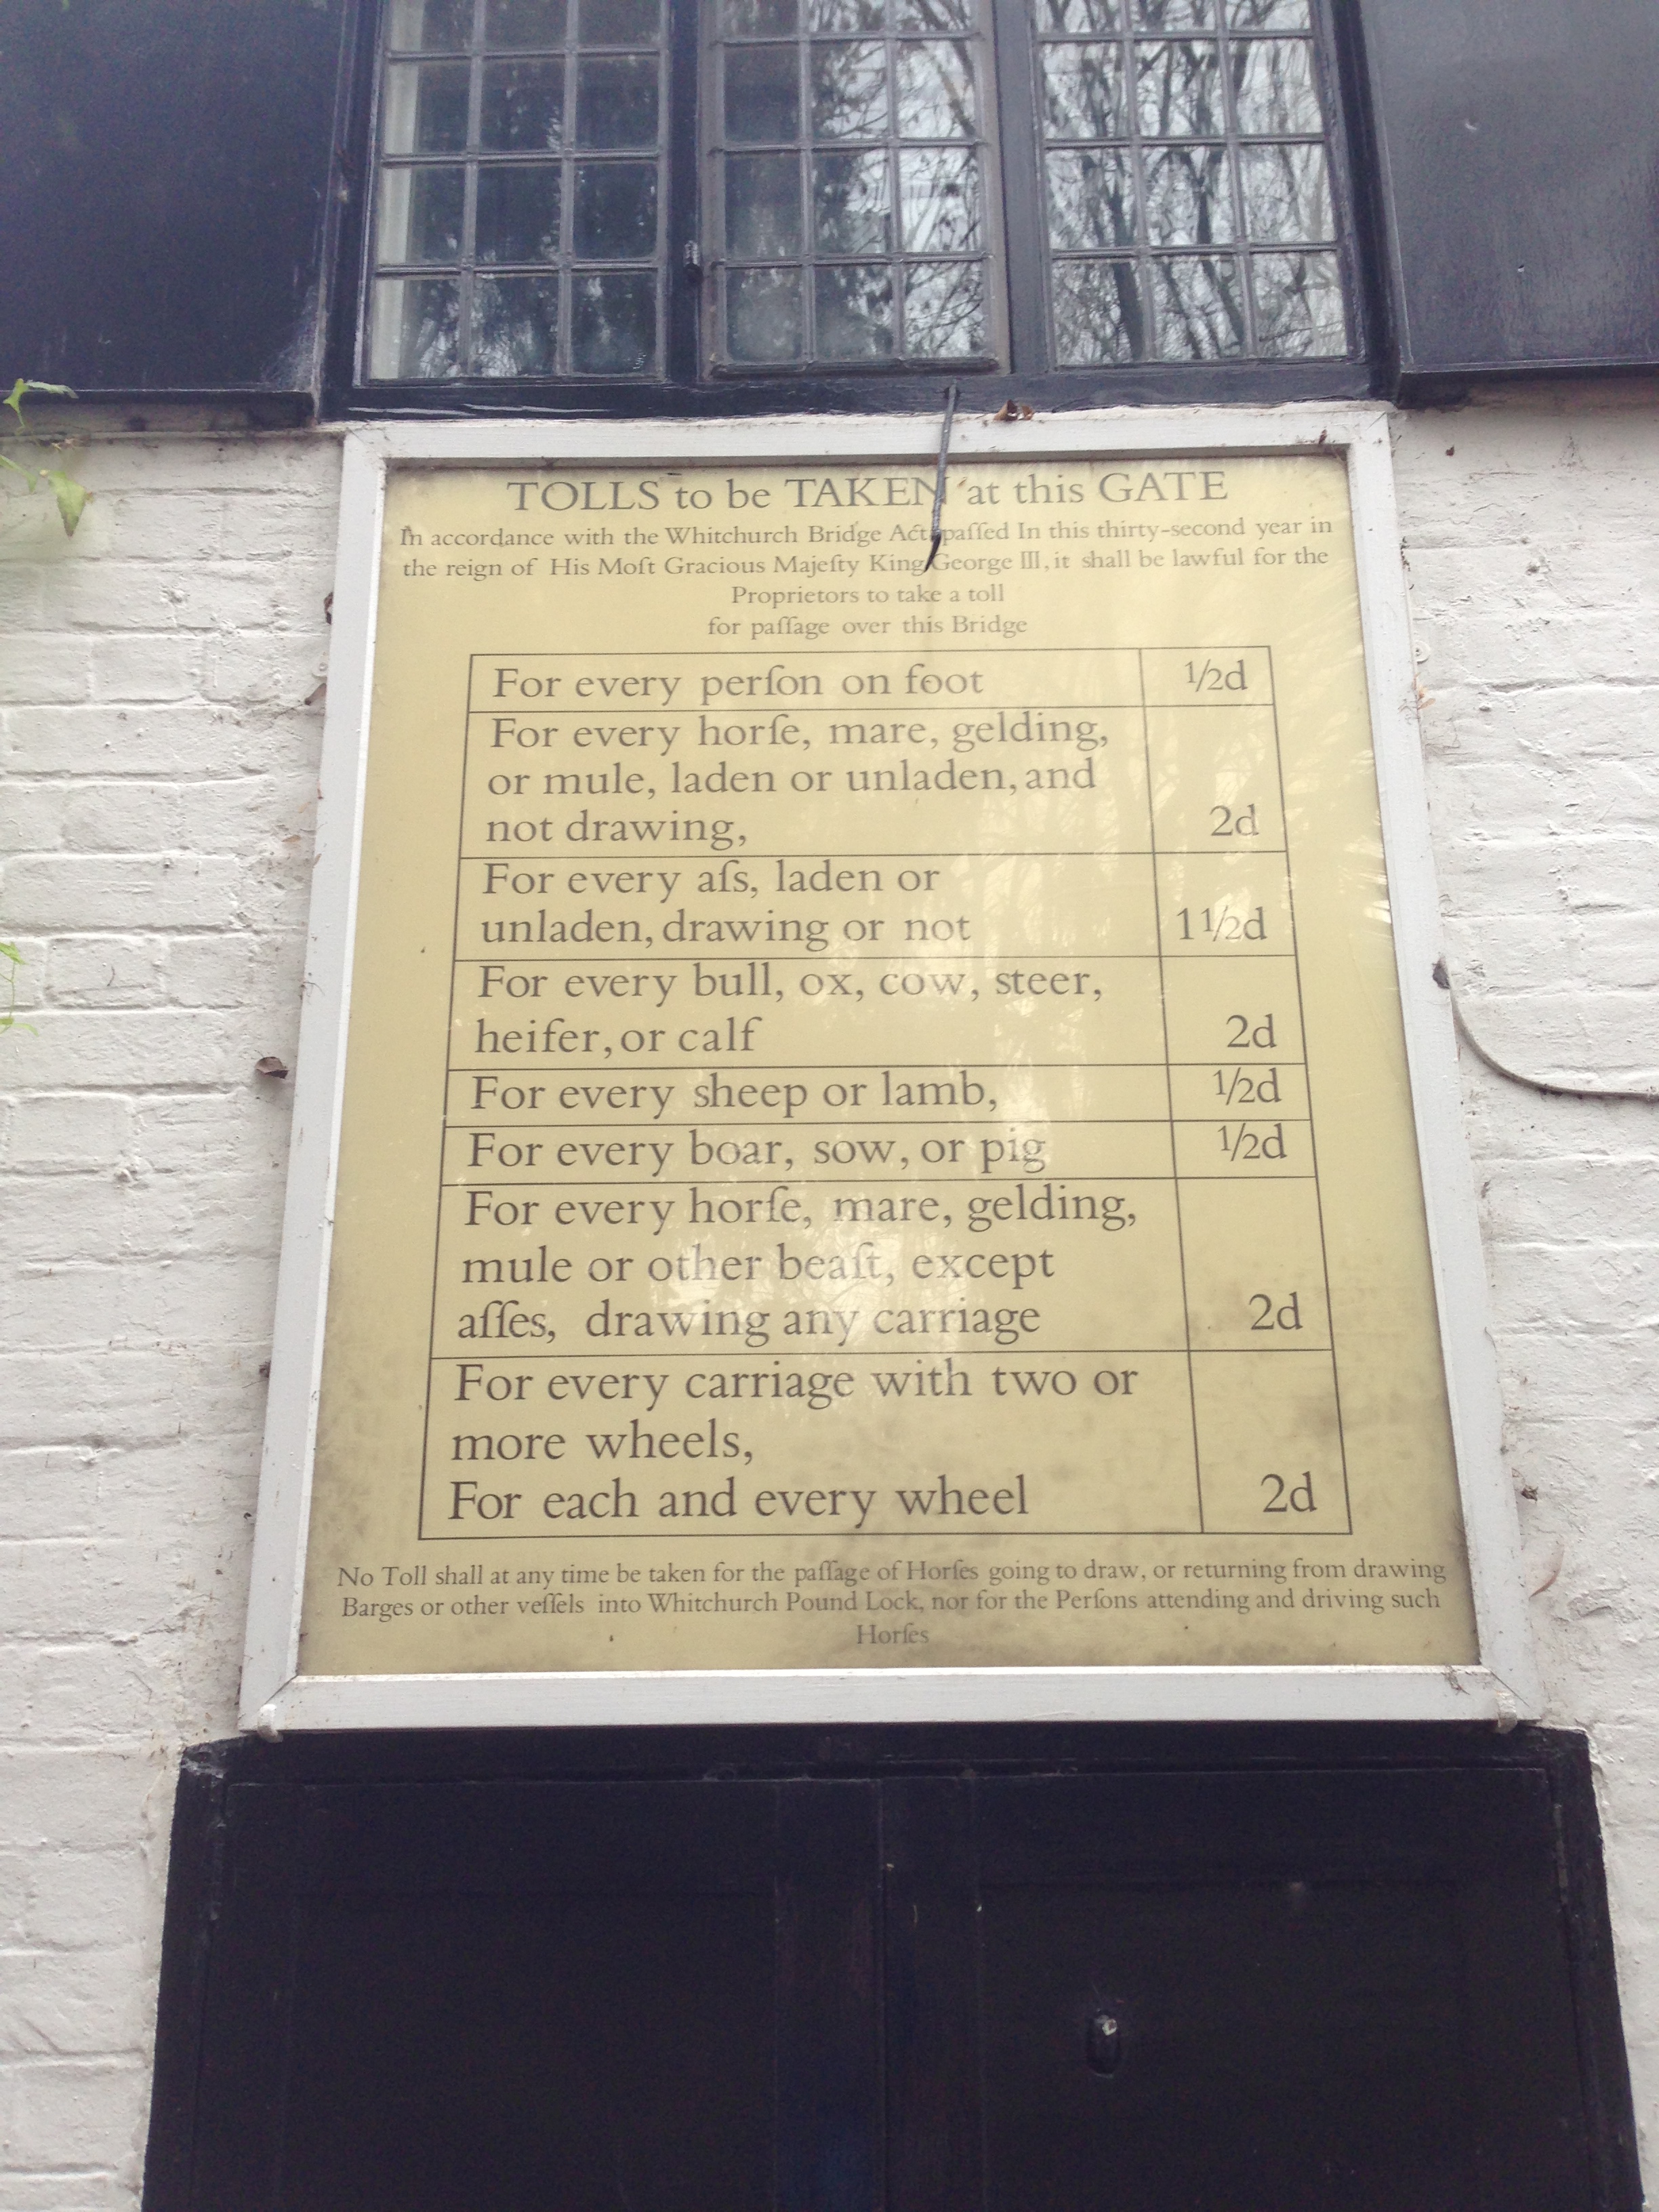 TOLLS to be TAKEN at this GATE
In accordance with the Whitchurch Bridge Act paſſed In this thirty-second year in
the reign of His Moſt Gracious Majeſty King George III, it shall be lawful for the
Proprietors to take a toll
for paſſage over this Bridge
For every perſon on foot ½d
For every horſe, mare, gelding,
or mule, laden or unladen, and
not drawing, 2d
For every aſs, laden or
unladen, drawing or not 1½d
For every bull, ox, cow, steer,
heifer, or calf 2d
For every sheep or lamb, ½d
For every boar, sow, or pig ½d
For every horſe, mare, gelding,
mule or other beaſt, except
aſſes, drawing any carriage 2d
For every carriage with two or
more wheels,
For each and every wheel 2d
No Toll shall at any time be taken for the paſſage of Horſes going to draw, or returning from drawing
Barges or other veſſels into Whitchurch Pound Lock, nor for the Perſons attending and driving such
Horſes